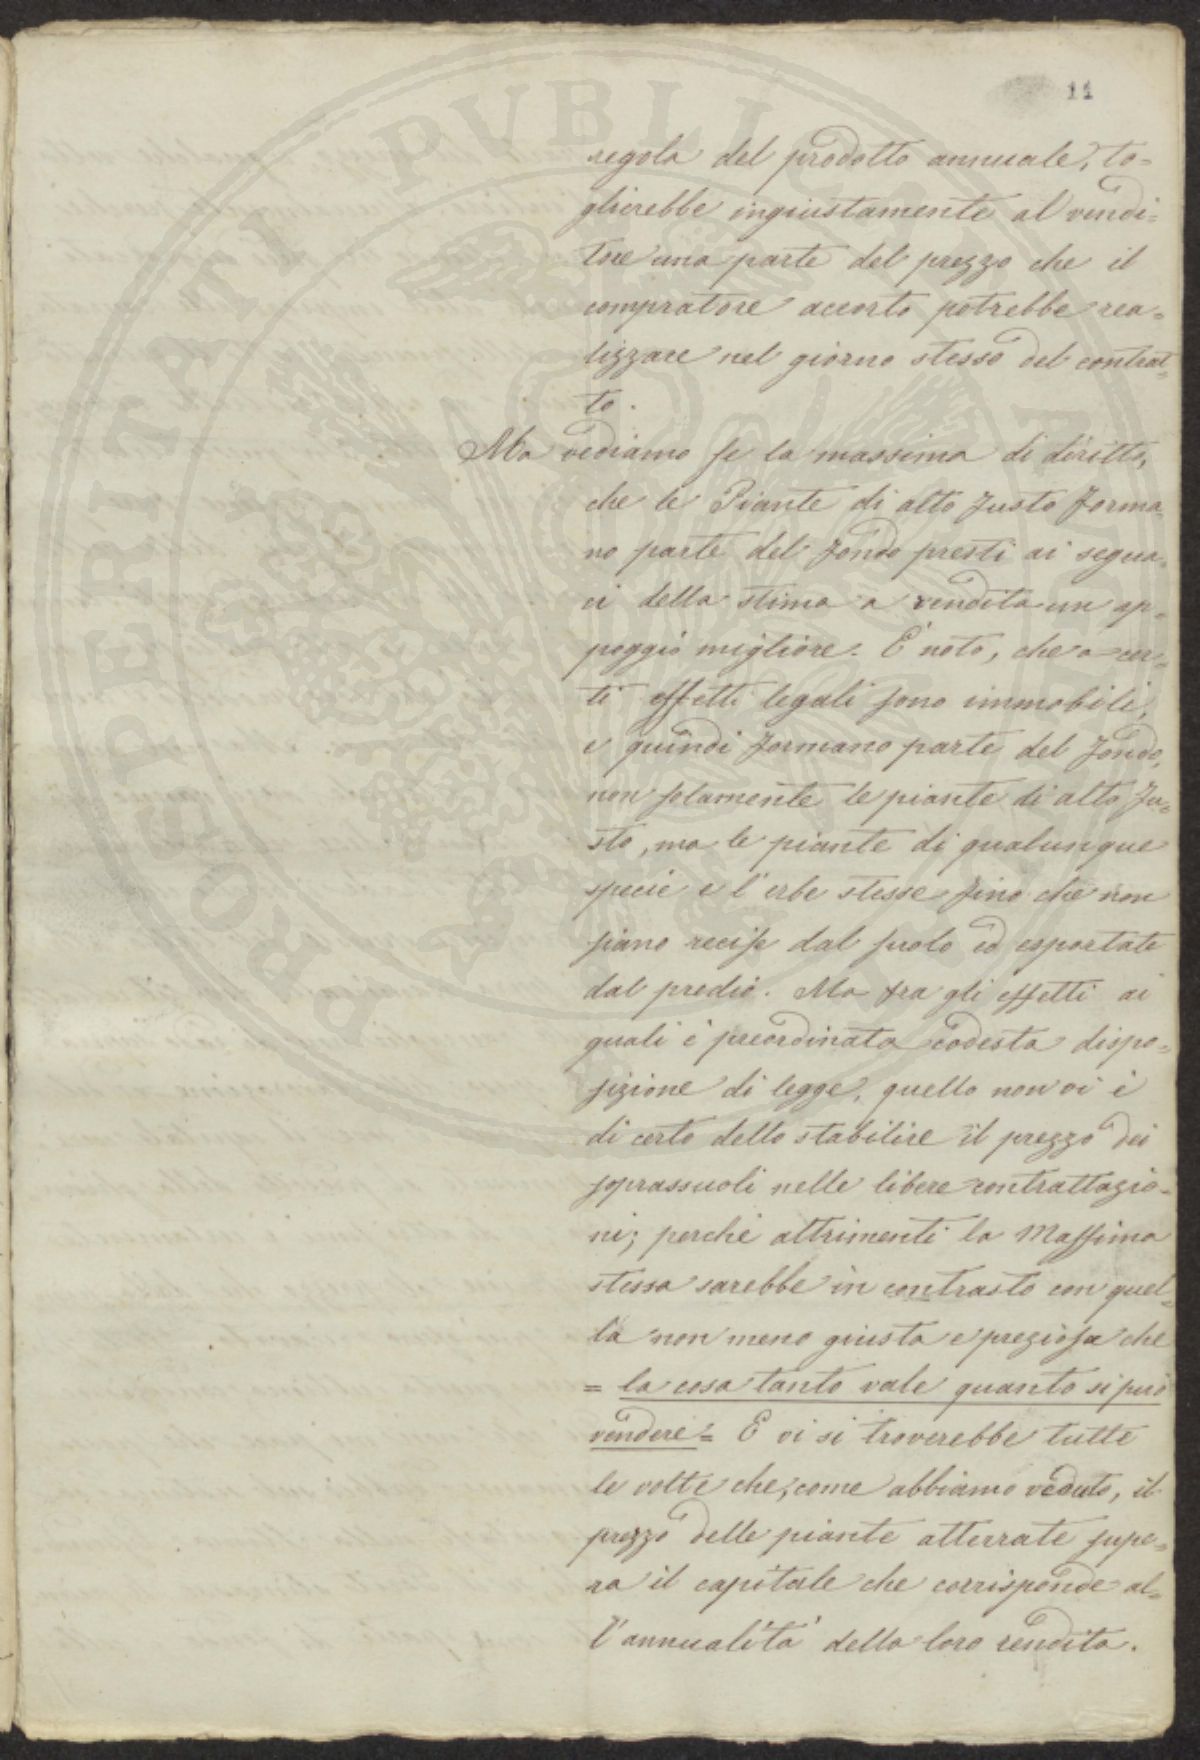 11
regola del prodotto annuale, to-
glierebbe ingiustamente al vendi-
tore una parte del prezzo che il
compratore accorto potrebbe rea-
lizzare nel giorno stesso del contrat-
to.
Ma vediamo se la massima di diritto,
che le Piante di alto fusto forma-
no parte del fondo presti ai segua-
ci della stima a vendita un ap-
poggio migliore. È noto, che a cer-
ti effetti legali sono immobili,
e quindi formano parte del fondo,
non solamente le piante di alto fu-
sto, ma le piante di qualunque
specie e l'erbe stesse fino che non
siano recise dal suolo ed esportate
dal predio. Ma fra gli effetti ai
quali è preordinata codesta dispo-
sizione di legge, quello non vi è
di certo dello stabilire il prezzo dei
soprassuoli nelle libere contrattazio-
ni; perchè altrimenti la Massima
stessa sarebbe in contrasto con quel-
la non meno giusta e preziosa che
= la cosa tanto vale quanto si può
vendere = E vi si troverebbe tutte
le volte che, come abbiamo veduto, il
prezzo delle piante atterrate supe-
ra il capitale che corrisponde al-
l'annualità della loro rendita.
PROSPERITATI PVBLICAE